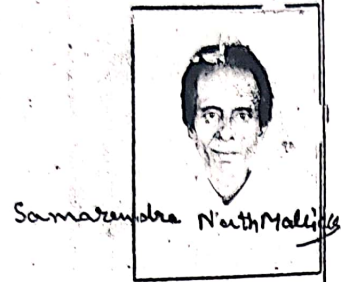 Samarendra Nath Mallick